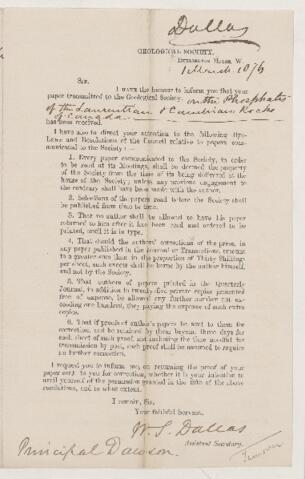 Dallas
GEOLOGICAL SOCIETY,
BURLINGTON HOUSE, W.
1 March 1876
SIR,
I HAVE the honour to inform you that your
paper transmitted to the Geological Society, on the Phosphates
of the Laurentian & Cambrian Rocks
of Canada
has been received.
I have also to direct your attention to the following Bye-
Laws and Resolutions of the Council relative to papers com-
municated to the Society:—
1. Every paper communicated to the Society, in order
to be read at its Meetings, shall be deemed the property
of the Society from the time of its being delivered at the
house of the Society; unless any previous engagement to
the contrary shall have been made with the author.
2. Selections of the papers read before the Society shall
be published from time to time.
3. That no author shall be allowed to have his paper
returned to him after it has been read and ordered to be
printed, until it is in type.
4. That should the authors' corrections of the press, in
any paper published in the Journal or Transactions, amount
to a greater sum than in the proportion of Thirty Shillings
per sheet, such excess shall be borne by the author himself,
and not by the Society.
5. That authors of papers printed in the Quarterly
Journal, in addition to twenty-five private copies presented
free of expense, be allowed any further number not ex-
ceeding one hundred, they paying the expense of such extra
copies.
6. That if proofs of author's papers be sent to them for
correction, and be retained by them beyond three days for
each sheet of such proof, not including the time needful for
transmission by post, such proof shall be assumed to require
no further correction.
I request you to inform me, on returning the proof of your
paper sent to you for correction, whether it is your intention to
avail yourself of the permission granted in the 5th of the above
resolutions, and to what extent.
I remain, Sir,
Your faithful Servant,
W. S. Dallas
Assistant Secretary.
Principal Dawson.